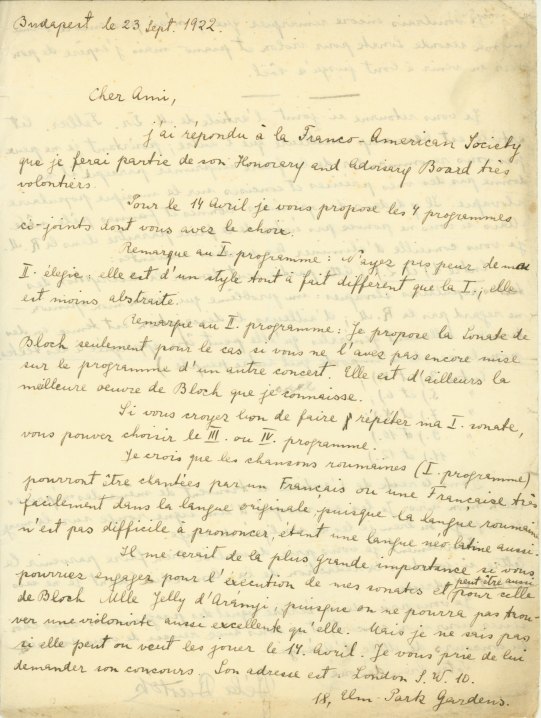 Budapest le 23. Sept. 1922.
Cher Ami,
j'ai répondu à la Franco-American Society
que je ferai partie de son Honorary and Advisary Board très
volontiers.
Pour le 14 Avril je vous propose les 4 programmes
ci-joints dont vous avez le choix.
Remarque au I. programme: N'ayez pas peur de ma
II. élégie: elle est d'un style tout à fait différent que la I., elle
est moins abstraite.
Remarque au II. programme: Je propose la Sonate de
Bloch seulement pour le cas si vous ne l'avez pas encore mise
sur le programme d'un autre concert. Elle est d'ailleurs la
meilleure oeuvre de Bloch que je connaisse.
Si vous croyez bon de faire répéter ma I. sonate,
vous pouvez choisir le III. ou IV. programme.
Je crois que les chansons roumaines (I. programme)
pourront être chantées par un Français ou une Française très
facilement dans la langue originale puisque la langue roumaine
n'est pas difficile à prononcer, étant une langue néo-latine aussi.
Il me serait de la plus grande importance si vous
pourriez engager pour l'exécution de mes sonates et peut être aussi pour celle
de Bloch Mlle Jelly d'Arányi, puisque on ne pourra pas trou-
ver une violoniste aussi excellente qu'elle. Mais je ne sais pas
si elle peut ou veut les jouer le 14. Avril. Je vous prie de lui
demander son concours. Son adresse est: London S. W. 10.
18, Elm Park Gardens.